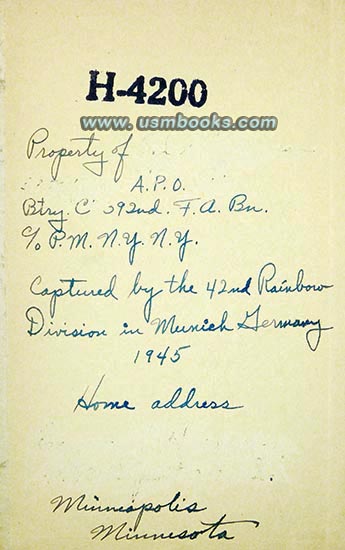 H-4200
www.usmbooks.com
Property of
A.P.O.
Btry. C 392nd. F.A. Bn.
c/o P.M. N.Y. N.Y.
Captured by the 42nd Rainbow
Division in Munich Germany
1945
Home address
Minneapolis
Minnesota